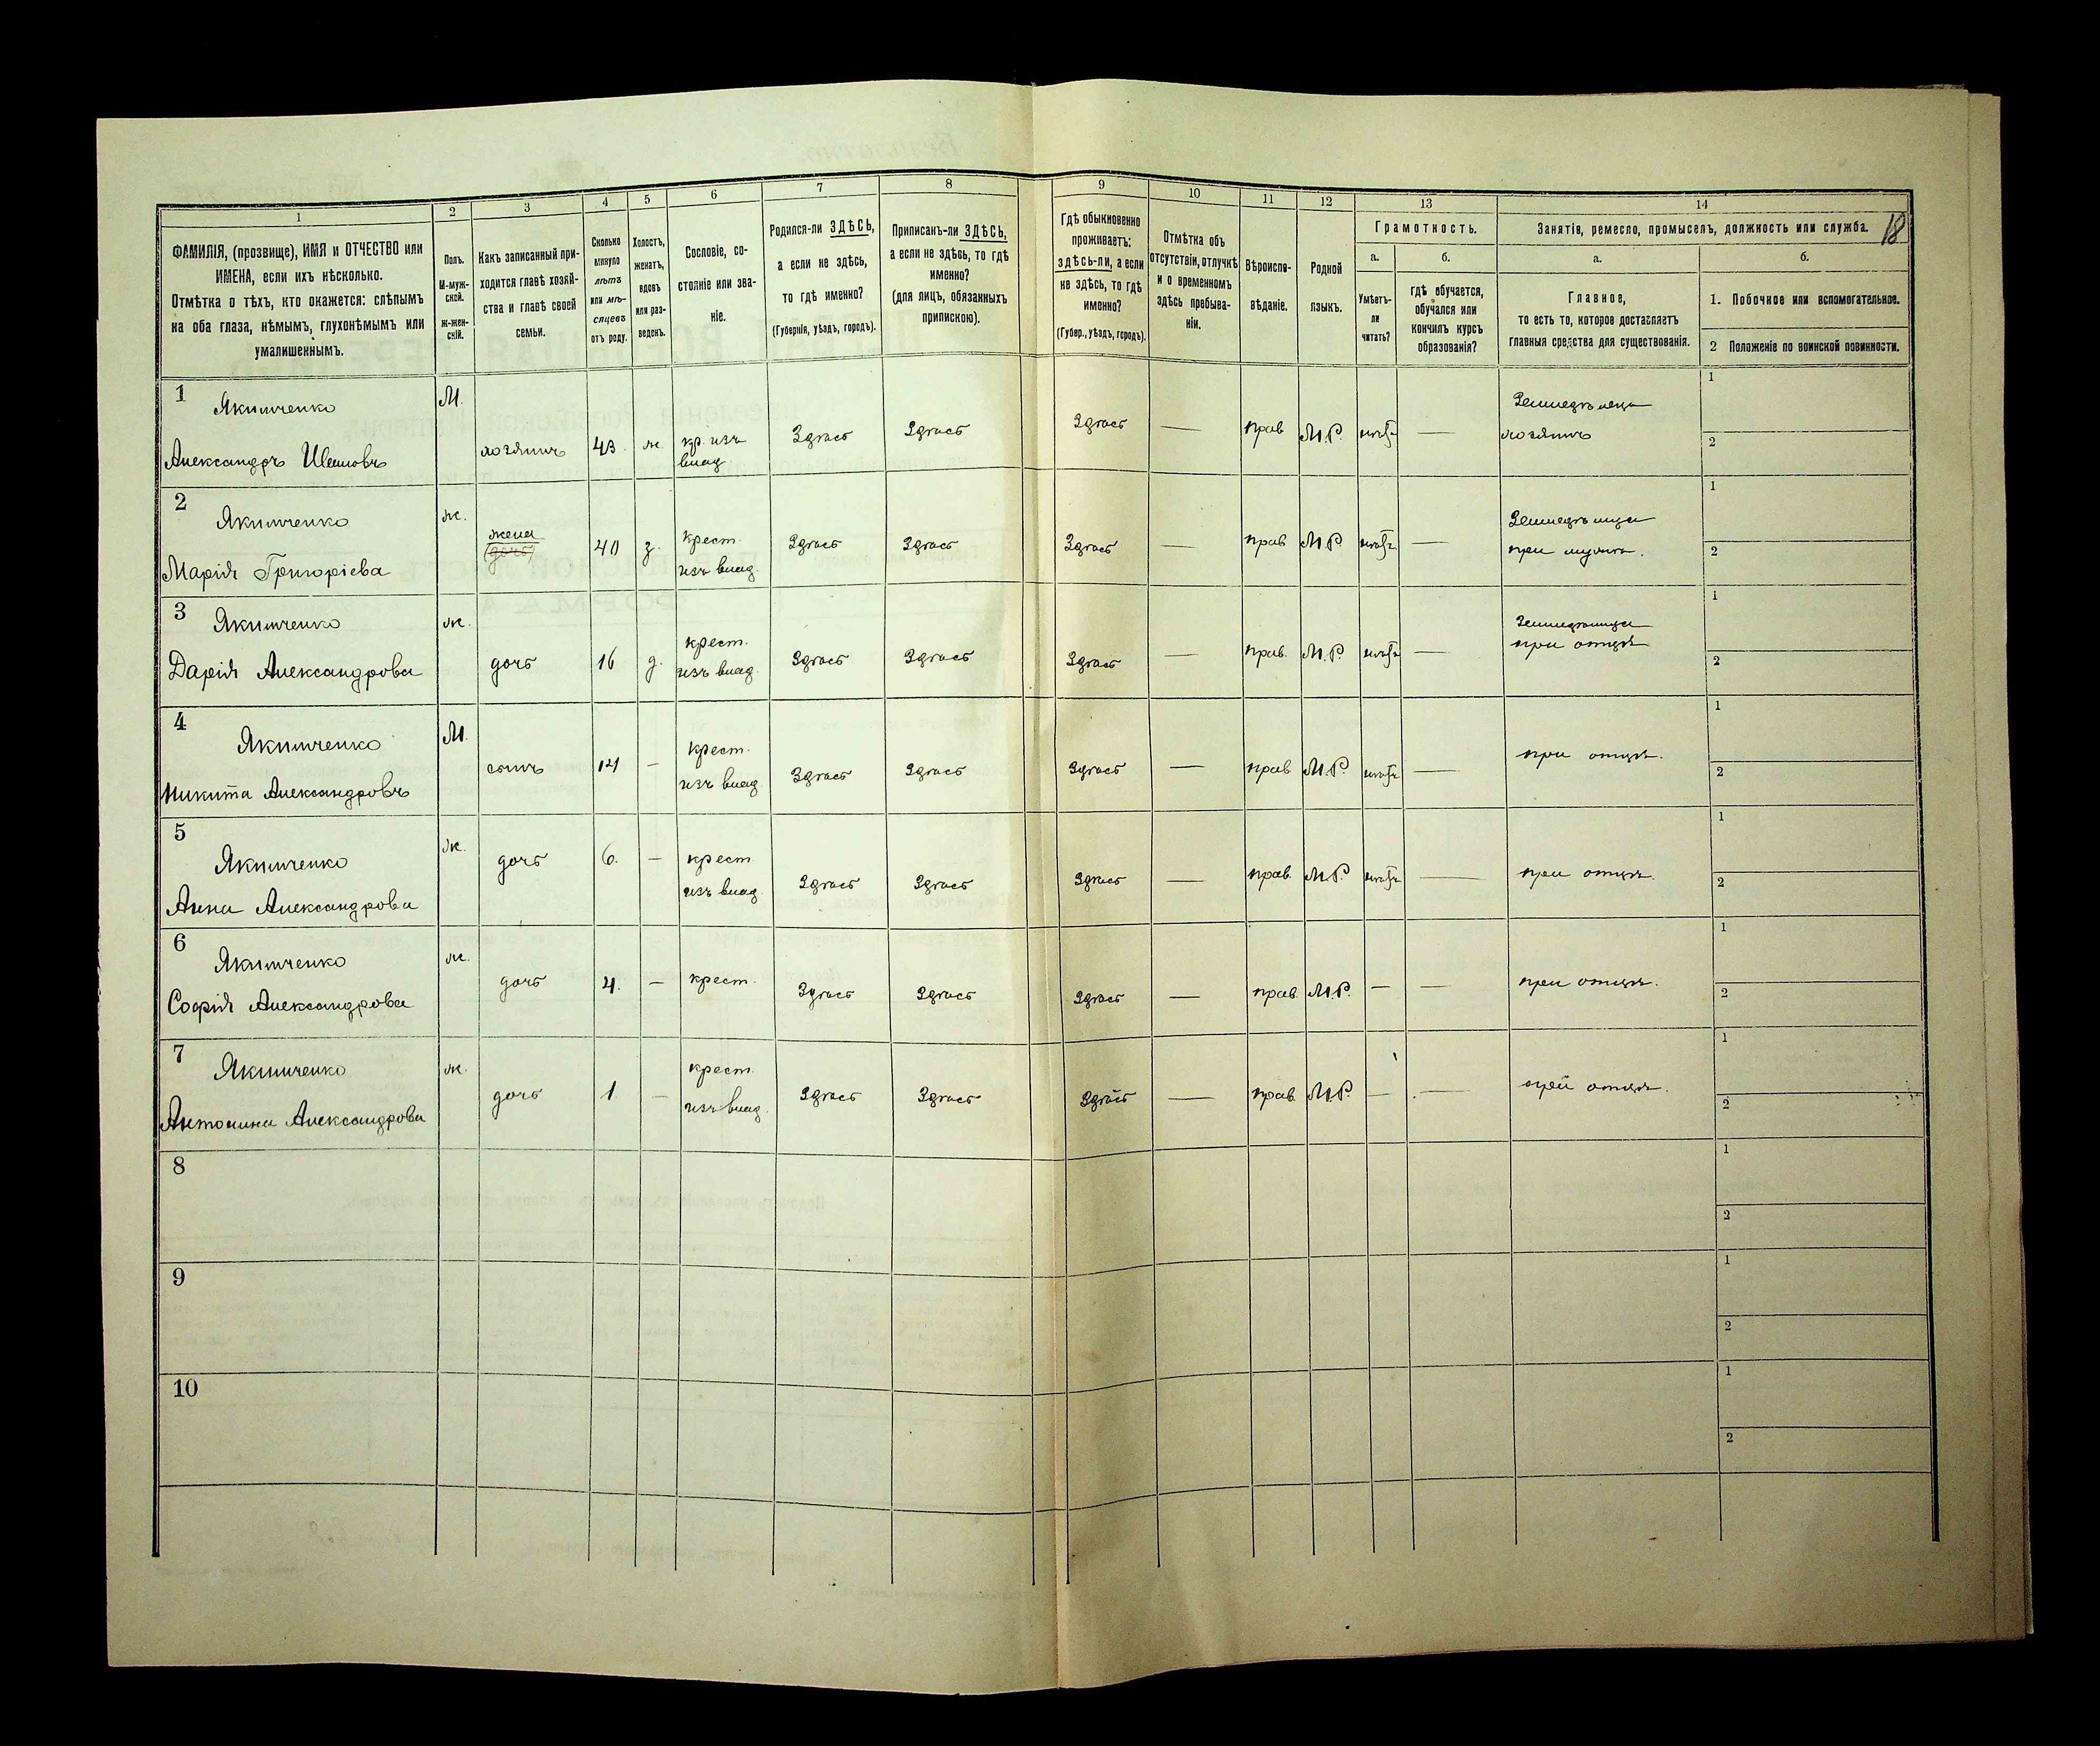 1 2 3 4 5 6 7 8 9 10 11 12 13 14
18
ФАМИЛІЯ, (прозвище), ИМЯ и ОТЧЕСТВО или
ИМЕНА, если ихъ нѣсколько.
Отмѣтка о тѣхъ, кто окажется: слѣпымъ
на оба глаза, нѣмымъ, глухонѣмымъ или
умалишеннымъ.
Полъ.
М-муж-
ской.
ж-жен-
скій.
Какъ записанный при-
ходится главѣ хозяй-
ства и главѣ своей
семьи.
Сколько
минуло
лѣтъ
или мѣ-
сяцевъ
отъ роду.
Холостъ,
женатъ,
вдовъ
или раз-
веденъ.
Сословіе, со-
стояніе или зва-
ніе.
Родился-ли ЗДѢСЬ,
а если не здѣсь,
то гдѣ именно?
(Губернія, уѣздъ, городъ).
Приписанъ-ли ЗДѢСЬ,
а если не здѣсь, то гдѣ
именно?
(для лицъ, обязанныхъ
припискою).
Гдѣ обыкновенно
проживаетъ:
здѣсь-ли, а если
не здѣсь, то гдѣ
именно?
(Губер., уѣздъ, городъ).
Отмѣтка объ
отсутствіи, отлучкѣ
и о временномъ
здѣсь пребыва-
ніи.
Вѣроиспо-
вѣданіе.
Родной
языкъ.
Грамотность.
а.
Умѣетъ-
ли
читать?
б.
гдѣ обучается,
обучался или
кончилъ курсъ
образованія?
Занятіе, ремесло, промыселъ, должность или служба.
а.
Главное,
то есть то, которое доставляетъ
главныя средства для существованія.
б.
1. Побочное или вспомогательное.
2 Положеніе по воинской повинности.
1 Якимченко М. Земледѣлецъ 1
Александръ хозяинъ 43. ж. кр. изъ влад. Здѣсь Здѣсь Здѣсь — прав М.Р. — хозяинъ 2
2 Якимченко ж. Земледѣлица 1
Марія Григоріева жена (дочь) 40 з. крест. изъ влад. Здѣсь Здѣсь Здѣсь — прав М.Р. — при мужѣ. 2
3 Якимченко ж. Земледѣлица 1
Дарія Александрова дочь 16 д. крест. изъ влад. Здѣсь Здѣсь Здѣсь — прав. М.Р. — при отцѣ 2
4 Якимченко М. 1
Никита Александровъ сынъ 14 — крест. изъ влад. Здѣсь Здѣсь Здѣсь — прав М.Р. — при отцѣ. 2
5 Якимченко ж. 1
Анна Александрова дочь 6. — крест. изъ влад. Здѣсь Здѣсь Здѣсь — прав. М.Р. — при отцѣ. 2
6 Якимченко ж. 1
Софія Александрова дочь 4. — крест. Здѣсь Здѣсь Здѣсь — прав. М.Р. — — при отцѣ. 2
7 Якимченко ж. 1
Антонина Александрова дочь 1. — крест. изъ влад. Здѣсь Здѣсь Здѣсь — прав. М.Р. — — при отцѣ. 2
8 1
2
9 1
2
10 1
2